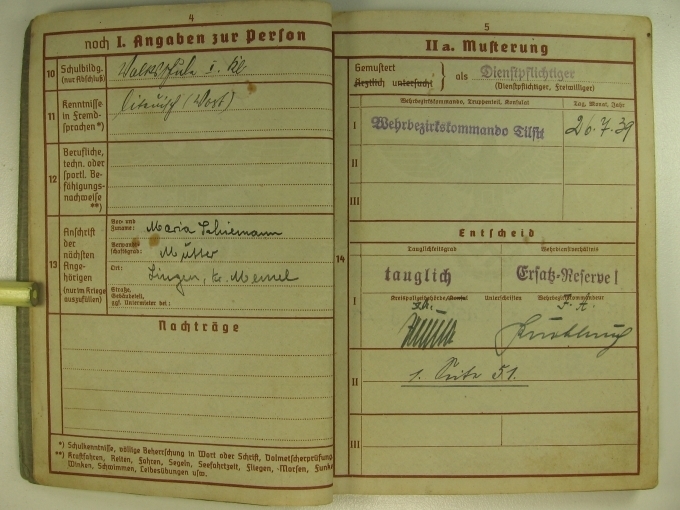 4
noch I. Angaben zur Person
10
Schulbildg.
(nur Abschluß)
Volksschule I. Kl.
11
Kenntnisse
in Fremd-
sprachen*)
litauisch (Wort)
12
Berufliche,
techn. oder
sportl. Be-
fähigungs-
nachweise
**)
13
Anschrift
der
nächsten
Ange-
hörigen
(nur im Kriege
auszufüllen)
Vor- und
Zuname:
Maria
Verwandt-
schaftsgrad:
Mutter
Ort:
Kr. Memel
Straße,
Gebäudeteil,
ggf. Untermieter bei:
Nachträge
*) Schulkenntnisse, völlige Beherrschung in Wort oder Schrift, Dolmetscherprüfung
**) Kraftfahren, Reiten, Fahren, Segeln, Seefahrtzeit, Fliegen, -Morsen, Funke
Winken, Schwimmen, Leibesübungen usw.
5
II a. Musterung
Gemustert
Ärztlich untersucht
als Dienstpflichtiger
(Dienstpflichtiger, Freiwilliger)
Wehrbezirkskommando, Truppenteil, Konsulat
Tag, Monat, Jahr
I
Wehrbezirkskommando Tilsit
26.7.39
II
III
14
Entscheid
Tauglichkeitsgrad
Wehrdienstverhältnis
tauglich
Ersatz-Reserve I
I
Kreispolizeibehörde, Konsul
Unterschriften
Wehrbezirkskommandeur
II
1. Seite 51.
III